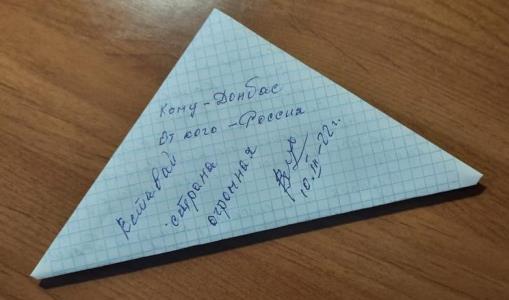 Кому - Донбас
От кого - Россия
Вставай
страна
огромная
10.III-22г.